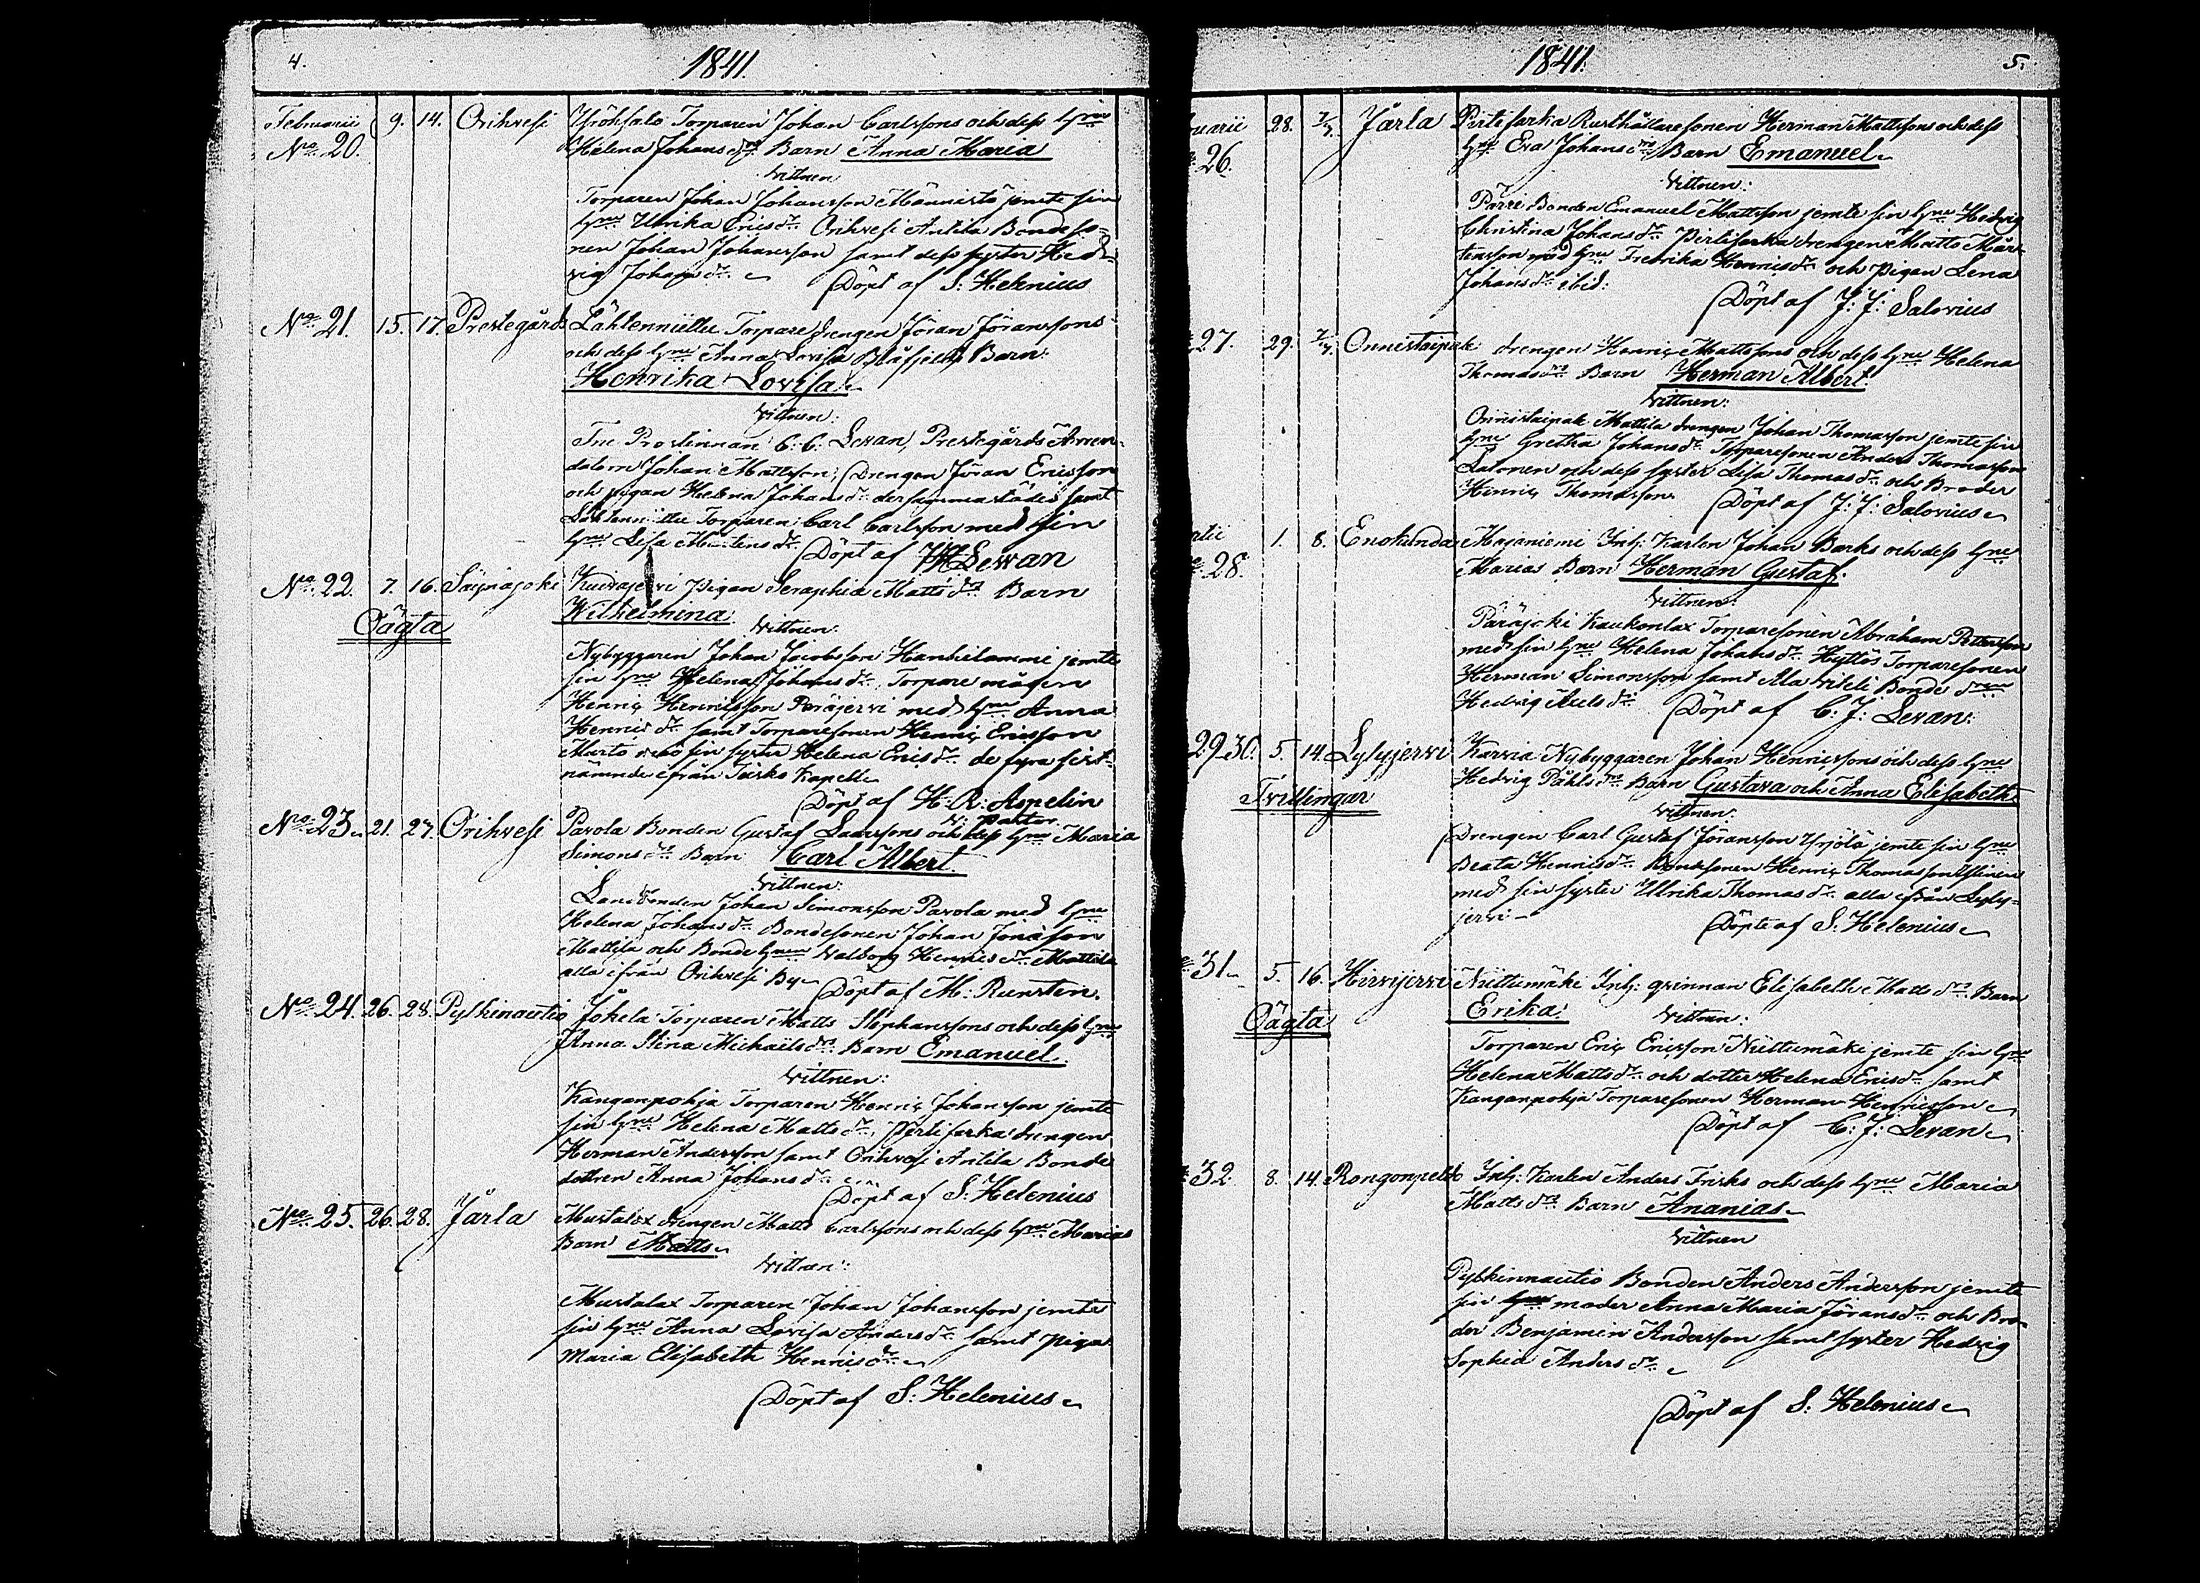 4.
1841.
Februarii 9. 14. Orihvesi Yröhsalo Torparen Johan Carlssons och dess hru
No 20. Helena Johansdrs Barn Anna Maria
Vittnen
Torparen Johan Johansson Männistö jemte sin
hru Ulrika Ericsdr. Orihvesi Antila Bondeso-
nen Johan Johansson samt dess syster Hed-
vig Johansdr.
Döpt af S: Helenius
No 21. 15. 17. Prestegårds Lähtenniittu Torparedrengen Jöran Jöranssons
och dess hru Anna Lovisa Blåfjelds Barn
Henrika Lovisa.
Vittnen:
Fru Prostinnan C: C: Levan, Prestegårds Arren-
datorn Johan Mattsson, Drengen Jöran Ericsson
och pigan Helena Johansdr. dersammastädes samt
Lähtenniittu Torparen Carl Carlsson med sin
hru Lisa Mårtensdr.
Döpt af Levan
No 22. 7. 16. Seinajoki Kuivasjervi Pigan Seraphia Mattsdrs Barn
Oägta Wilhelmina.
Vittnen:
Nybyggaren Johan Jacobsson Hanhelammi jemte
sin hru Helena Johansdr, Torparemågen
Henric Henricsson Peräjervi med hru Anna
Henricsdr samt Torparesonen Henric Ericsson
Marto med sin syster Helena Ericsdr. de fyra sist-
nämnde ifrån Jårks Kapell
Döpt af H: R: Aspelin
v: pastor
No 23. 21. 27. Orihvesi Pavola Bonden Gustaf Larssons och dess hru Maria
Simonsdrs Barn Carl Albert.
Vittnen:
Landbonden Johan Simonsson Pavola med hru
Helena Johansdr. Bondesonen Johan Jonasson
Mattila och Bondehrun Valborg Henricsdr Mattila
alla ifrån Orihvesi By
Döpt af M: Runsten.
No 24. 26. 28. Pylkinautio Jokela Torparen Matts Stephanssons och dess hru
Anna Stina Michaelsdrs Barn Emanuel.
Vittnen:
Kanganpohja Torparen Henric Johansson jemte
sin hru Helena Mattsdr, Pertisarka drengen
Herman Andersson samt Orihvesi Antila Bonde
dottren Anna Johansdr.
Döpt af S: Helenius
No 25. 26. 28. Jårla Mustalax drengen Matts Carlssons och dess hru Marias
Barn Matts
Vittnen:
Mustalax Torparen Johan Johansson jemte
sin hru Anna Lovisa Andersdr. samt piga
Maria Elisabeth Henricsdr.
Döpt af S: Helenius
1841.
5.
ruarii 28. 7/3. Jårla Pertisarka Rusthållaresonen Herman Mattssons och dess
26. hru Eva Johansdrs Barn Emanuel
Vittnen:
Pärri Bonden Emanuel Mattsson jemte sin hru Hedvig
Christina Johansdr. Pertisarka drengen Matts Mår-
tensson med hru Fredrika Henricsdr och Pigan Lena
Johansdr ibid:
Döpt af J: J: Salovius
27. 29. 7/3. Onnistaipale drengen Henric Mattssons och dess hru Helena
Thomasdrs Barn Herman Albert.
Vittnen:
Onnistaipale Mattila drengen Johan Thomasson jemte sin
hru Gretha Johansdr Torparesonen Anders Thomasson
Salonen och dess syster Lisa Thomasdr. och Broder
Henric Thomasson
Döpt af J: J: Salovius
rtii 1. 8. Enokunda Majaniemi Inh: Karlen Johan Barks och dess hru
28. Marias Barn Herman Gustaf.
Vittnen:
Päräjoki Kaukonlax Torparesonen Abraham Pettersson
med sin hru Helena Johansdr. Hyttös Torparesonen
Herman Simonsson samt Ala Viteli Bonde drn
Hedvig Axelsdr
Döpt af C: J: Levan:
29 30. 5. 14. Lylyjervi Karvia Nybyggaren Johan Henricssons och dess hru
Tvillingar Hedvig Påhlsdrs Barn Gustava och Anna Elisabeth.
Vittnen:
Drengen Carl Gustaf Jöransson Yrjölä jemte sin hru
Beata Henricsdr. Bondesonen Henric Thomasson Ylinen
med sin syster Ulrika Thomasdr. alla ifrån Lyly-
jervi
Döpte af S: Helenius
31 5. 16. Hirvijervi Niittumäki Inh: qvinnan Elisabeth Mattsdrs Barn
Oägta Erika.
Vittnen:
Torparen Eric Ericsson Niittumäki jemte sin hru
Helena Mattsdr. och dotter Helena Ericsdr. samt
Kanganpohja Torparesonen Herman Henricsson
Döpt af C: J: Levan
32. 8. 14. Rongonpelto Inh: Karlen Anders Frisks och dess hru Maria
Mattsdrs Barn Ananias
Vittnen
Pylkinnautio Bonden Anders Andersson jemte
sin moder Anna Maria Jöransdr. och Bro-
der Benjamin Andersson samt syster Hedvig
Sophia Andersdr.
Döpt af S: Helenius